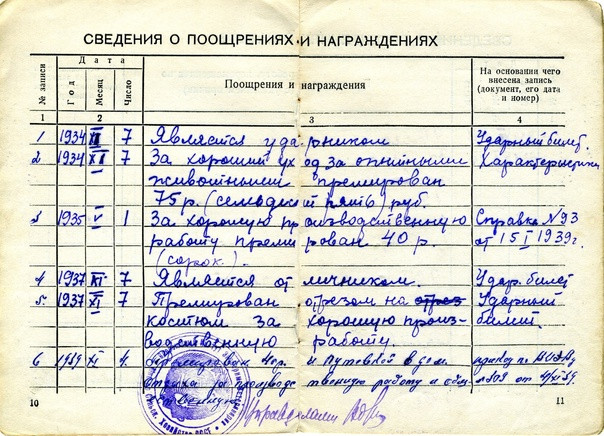 СВЕДЕНИЯ О ПООЩРЕНИЯХ И НАГРАЖДЕНИЯХ
№ записи
Дата
Год
Месяц
Число
Поощрения и награждения
На основании чего
внесена запись
(документ, его дата
и номер)
1 2 3 4
1 1934 XI 7 Является ударником Ударный билет.
2 1934 XI 7 За хороший уход за опытными Характеристика
животными премирован
75 р. (семьдесят пять) руб.
3 1935 V 1 За хорошую производственную Справка N93
работу премирован 40 р. от 15 I 1939г.
(сорок).
4 1937 XI 7 Является отличником. Удар. билет
5 1937 XI 7 Премирован отрезом на отрез Ударный
костюм за хорошую произ- билет.
водственную работу.
6 1939 XI и путевкой в дом
отдыха за производственную работу и
10
11